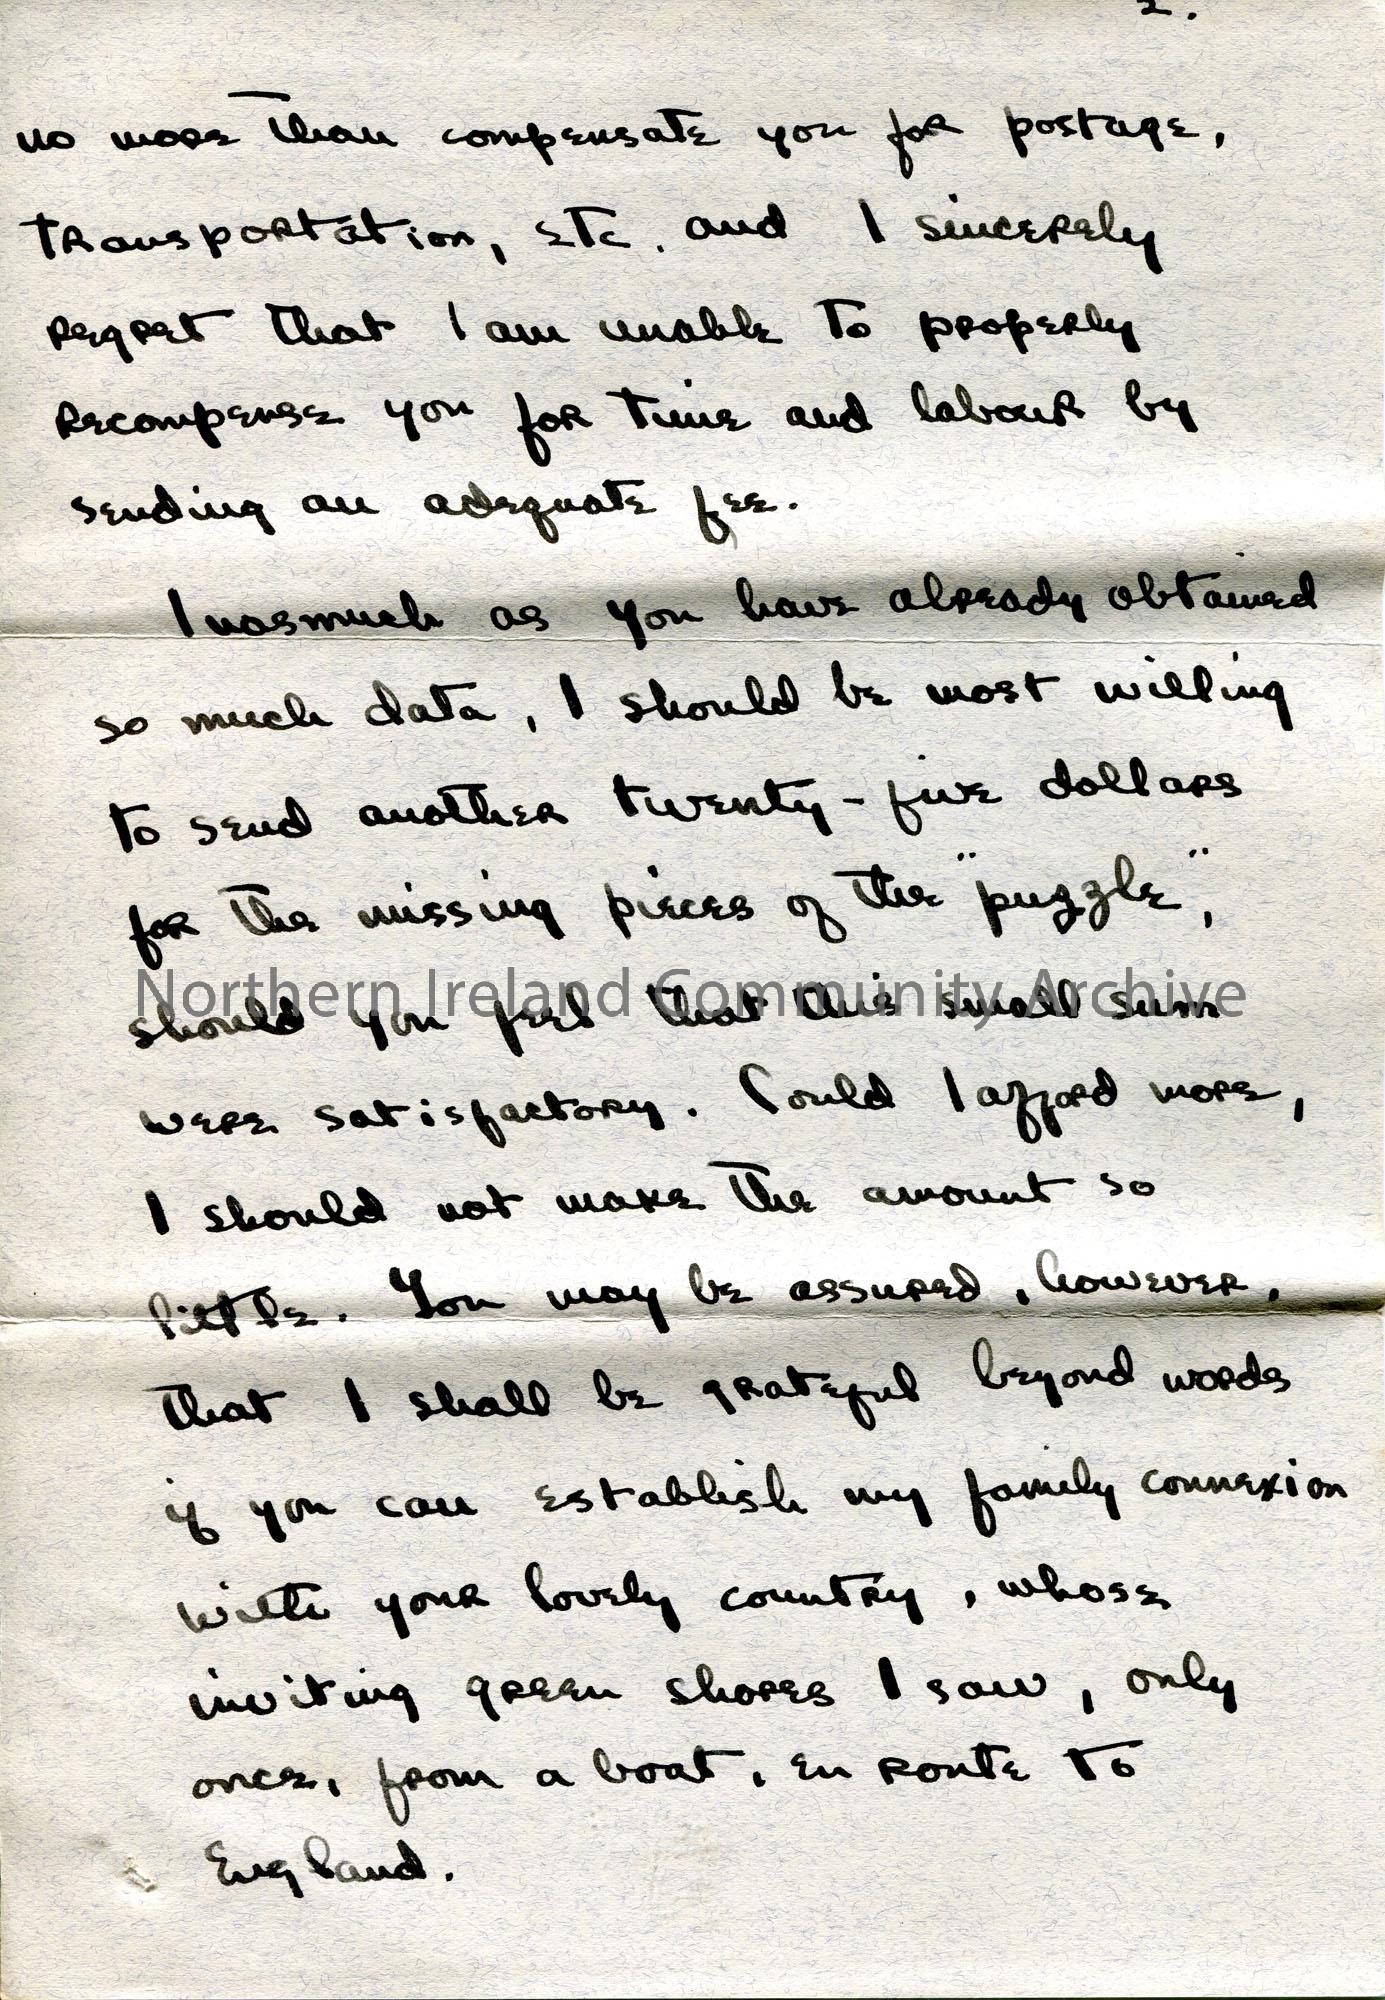 2.
no more than compensate you for postage,
transportation, etc. and I sincerely
regret that I am unable to properly
recompense you for time and labour by
sending an adequate fee.
Inasmuch as you have already obtained
so much data, I should be most willing
to send another twenty-five dollars
for the missing pieces of the "puzzle",
Northern Ireland Community Archive
should you feel that this small sum
were satisfactory. Could I afford more,
I should not make the amount so
little. You may be assured, however,
that I shall be grateful beyond words
if you can establish my family connexion
with your lovely country, whose
inviting green shores I saw, only
once, from a boat, en route to
England.